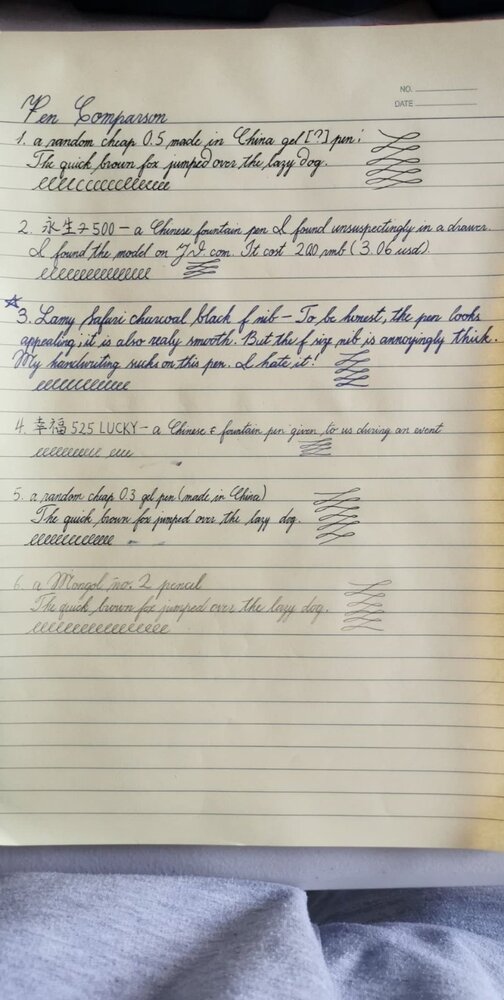 NO.
DATE
Pen Comparison
1. a random cheap 0.5 made in China gel [?] pen:
The quick brown fox jumped over the lazy dog.
2. 永生 500 – a Chinese fountain pen I found unsuspectingly in a drawer.
I found the model on JD.com. It cost 200 rmb (3.06 usd).
3. Lamy Safari charcoal black f nib – To be honest, the pen looks
appealing, it is also realy smooth. But the f size nib is annoyingly thick.
My handwriting sucks on this pen. I hate it!
4. 幸福 525 LUCKY – a Chinese fountain pen given to us during an event
5. a random cheap 0.3 gel pen (made in China)
The quick brown fox jumped over the lazy dog.
6. a Mongol no. 2 pencil
The quick brown fox jumped over the lazy dog.